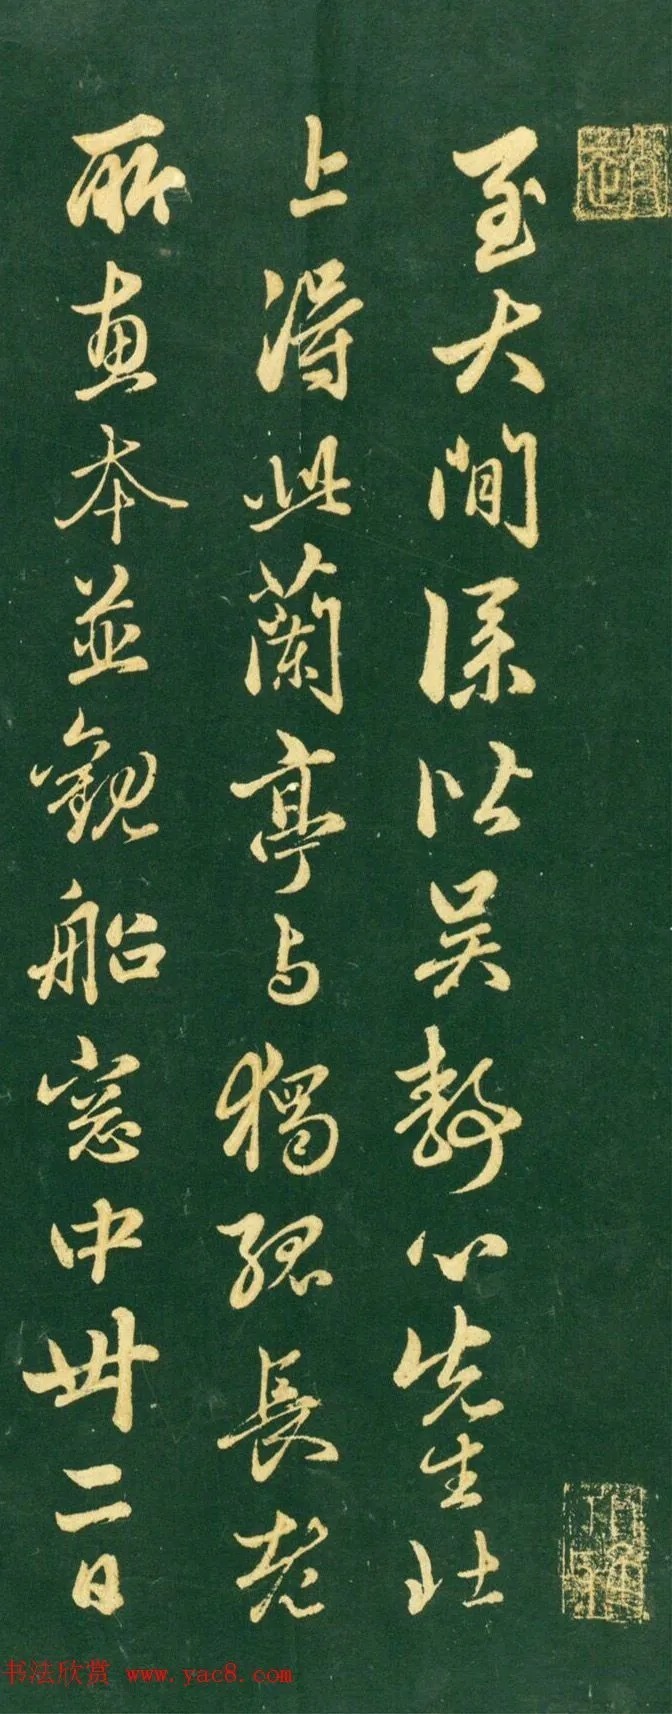 至大間僕從吴静心先生北
上得此蘭亭与獨孤長老
所惠本並觀船窓中廿二日
书法欣赏 www.yac8.com